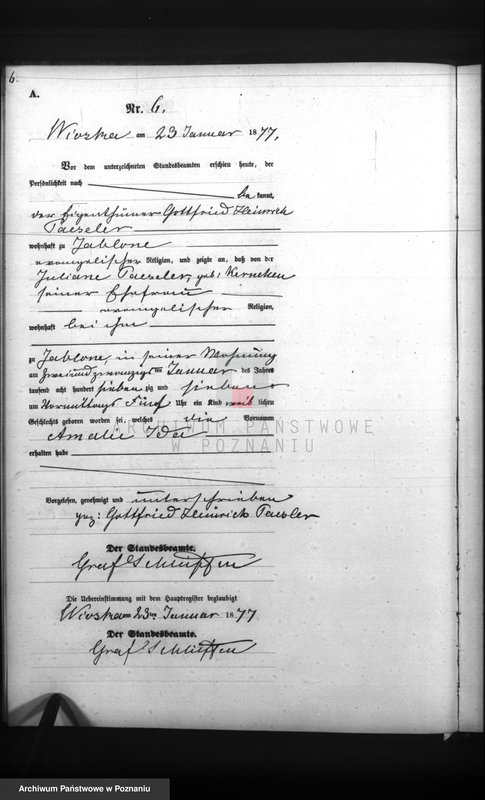 6.
A.
Nr. 6.
Wioska am 23 Januar 1877.
Vor dem unterzeichneten Standesbeamten erschien heute, der
Persönlichkeit nach
bekannt,
der Eigenthümer Gottfried Heinrich
Paeseler
wohnhaft zu Jablone
evangelischer Religion, und zeigte an, daß von der
Juliane Paeseler, geb: Kerneken
seiner Ehefrau
evangelischer Religion,
wohnhaft bei ihm
zu Jablone, in seiner Wohnung
am zwei und zwanzigsten Januar des Jahres
tausend acht hundert siebenzig und sieben
um Vormittags Fünf Uhr ein Kind weiblichen
Geschlechts geboren worden sei, welches die Vornamen
Amalie Ida
erhalten habe
ARCHIWUM PAŃSTWOWE
W POZNANIU
Vorgelesen, genehmigt und unterschrieben
gez: Gottfried Heinrich Paesler
Der Standesbeamte.
Graf Schlieffen
Die Uebereinstimmung mit dem Hauptregister beglaubigt
Wioska am 23ten Januar 1877
Der Standesbeamte.
Graf Schlieffen
Archiwum Państwowe w Poznaniu